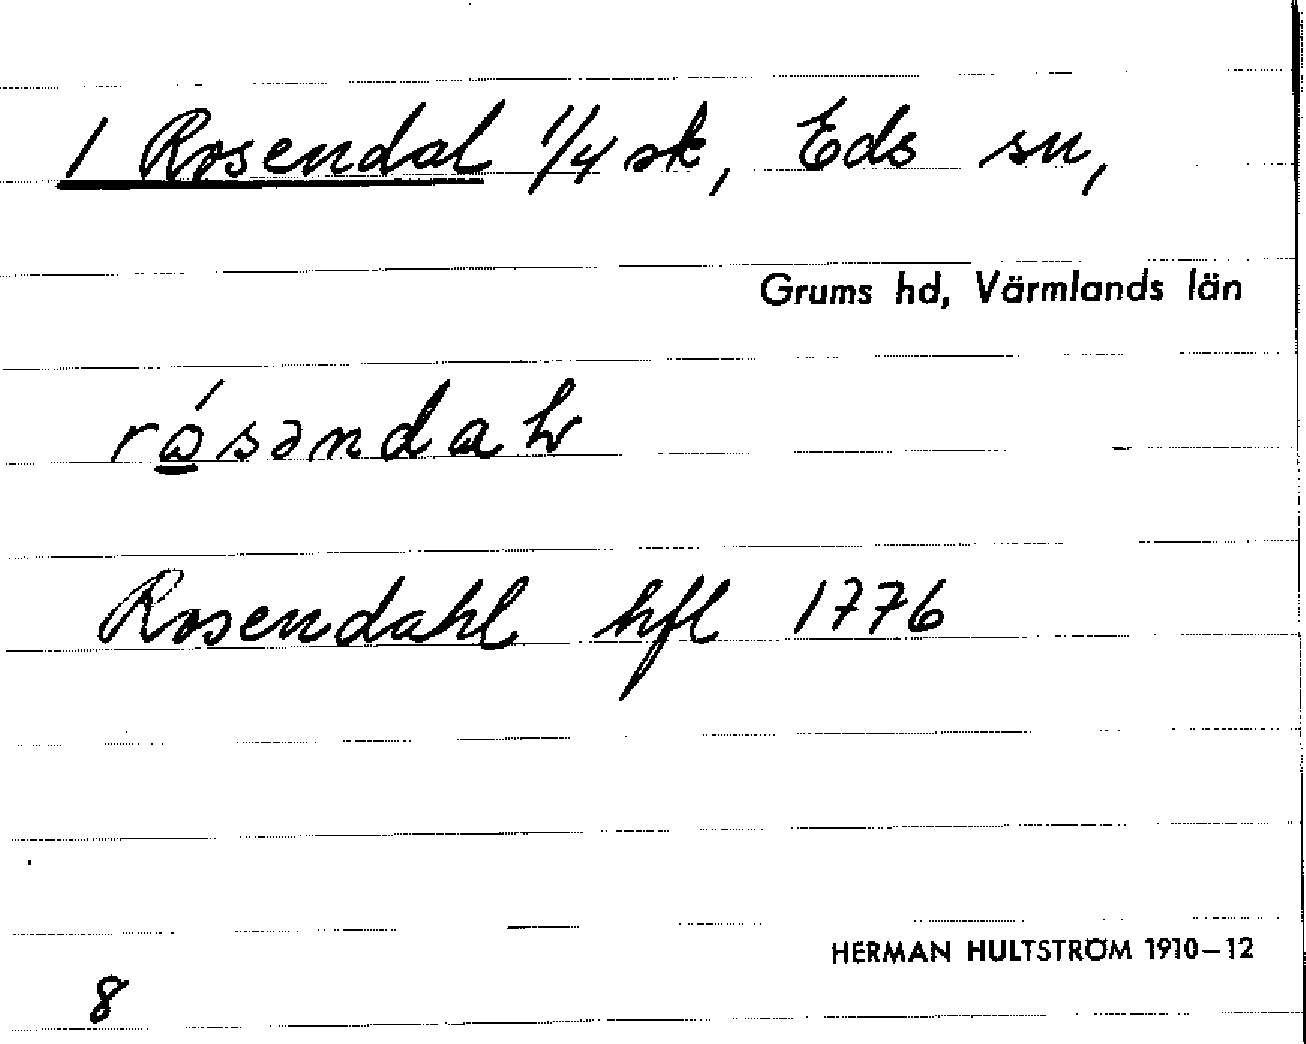 1 Rosendal 1/4 sk, Eds sn,
Grums hd, Värmlands län
Rosendahl hfl 1776
HERMAN HULTSTRÖM 1910–12
8